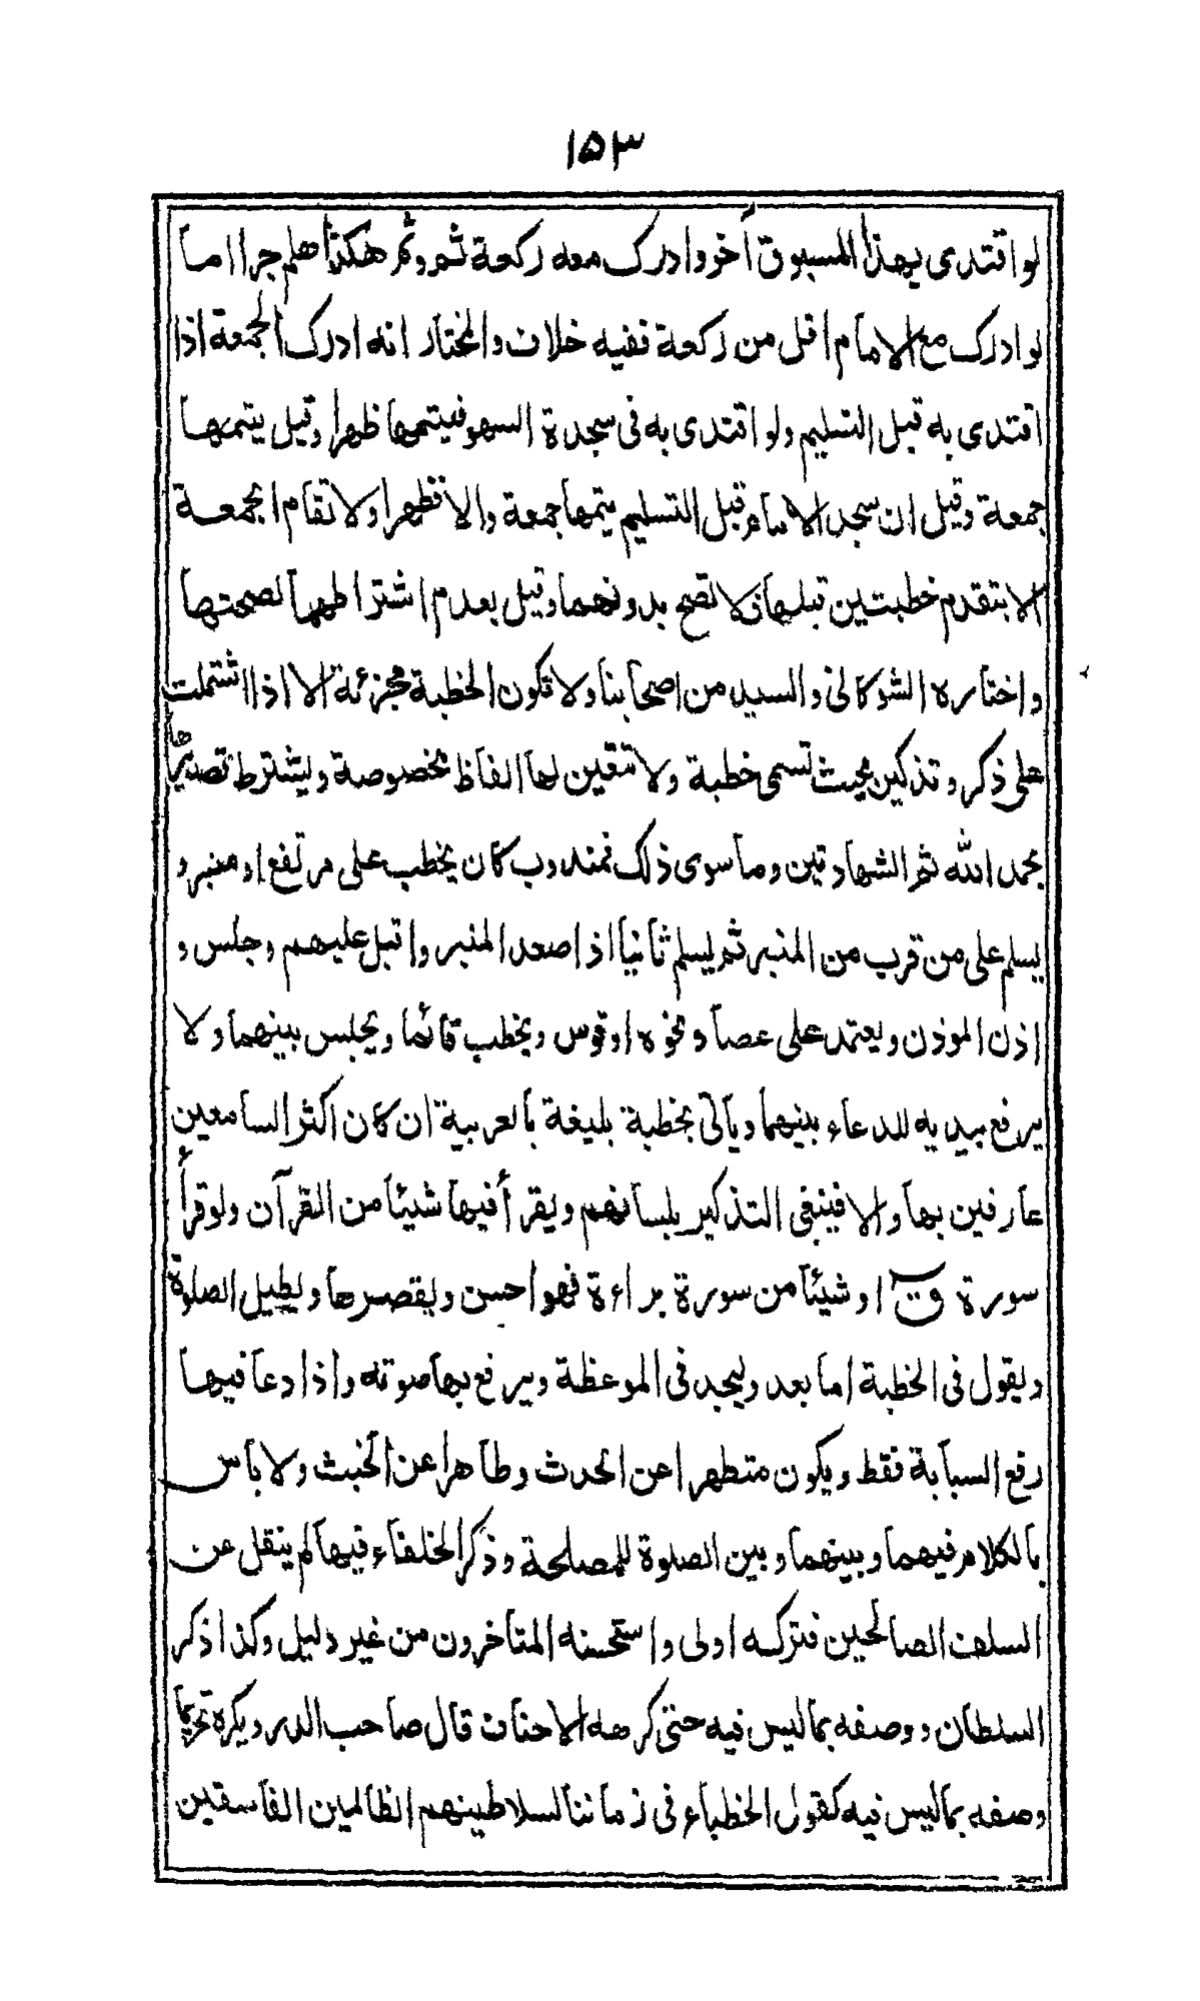 ١٥٣
لو اقتدى بهذا المسبوق آخر وادرك معه ركعة ثم وثم هكذا هلم جرا اما
لو ادرك مع الامام اقل من ركعة ففيه خلاف والمختار انه ادرك الجمعة اذا
اقتدى به قبل التسليم ولو اقتدى به فى سجدة السهو فيتمها ظهرا وقيل يتمها
جمعة وقيل ان سجد الامام قبل التسليم يتمها جمعة والا فظهرا ولا تقام الجمعة
الا بتقدم خطبتين قبلها فلا تصح بدونهما وقيل بعدم اشتراطهما لصحتها
واختاره الشوكانى والسيد من اصحابنا ولا تكون الخطبة مجزئة الا اذا اشتملت
على ذكر وتذكير بحيث تسمى خطبة ولا تتعين لها الفاظ مخصوصة ويشترط تصديرها
بحمد الله ثم الشهادتين وما سوى ذلك فمندوب كان يخطب على مرتفع او منبر و
يسلم على من قرب من المنبر ثم ليسلم ثانيا اذا صعد المنبر واقبل عليهم وجلس و
اذن الموذن ويعتمد على عصا ونحوه او قوس ويخطب قائما ويجلس بينهما ولا
يرفع يديه للدعاء بينهما وياتى بخطبة بليغة بالعربية ان كان اكثر السامعين
عارفين بها والا فينبغى التذكير بلسانهم ويقرأ فيها شيئا من القرآن ولو قرأ
سورة ق او شيئا من سورة براءة فهو احسن ويقصرها ويطيل الصلوة
ويقول فى الخطبة اما بعد وليجد فى الموعظة ويرفع بها صوته واذا دعا فيها
رفع السبابة فقط ويكون متطهرا عن الحدث وطاهرا عن الخبث ولا باس
بالكلام فيهما وبينهما وبين الصلوة للمصلحة وذكر الخلفاء فيها لم ينقل عن
السلف الصالحين فتركه اولى واستحسنه المتاخرون من غير دليل وكذا ذكر
السلطان ووصفه بما ليس فيه حتى كرهه الاحناف قال صاحب الدر ويكره تحريما
وصفه بما ليس فيه كقول الخطباء فى زماننا لسلاطينهم الظالمين الفاسقين